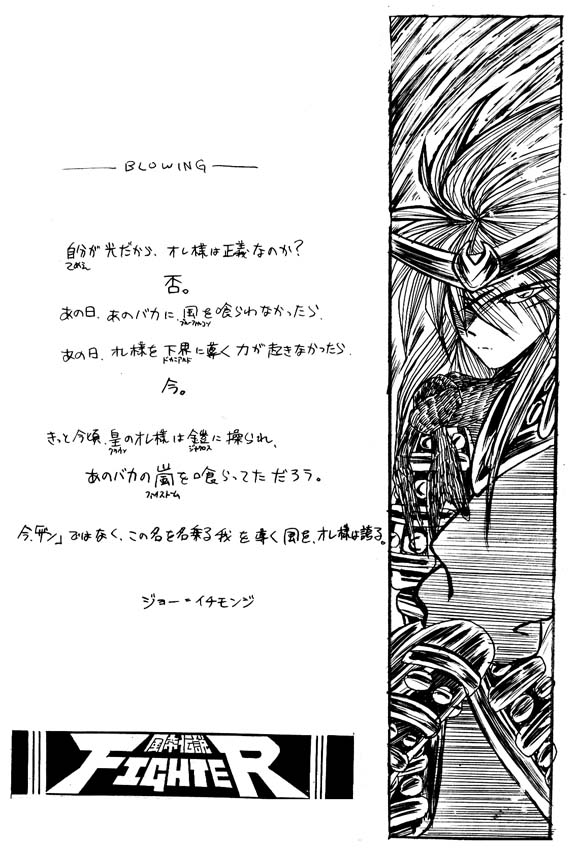 BLOWING
自分が光だから、オレ様は正義なのか?
てめえ
否。
あの日、あのバカに、風を喰らわなかったら、
あの日、オレ様を下界に導く力が起きなかったら、
今。
きっと今頃、皇のオレ様は鎧に操られ、
あのバカの嵐を喰らってただろう。
今、「ザン」ではなく、この名を名乗る我を導く風を、オレ様は誇る。
ジョー=イチモンジ
FIGHTER